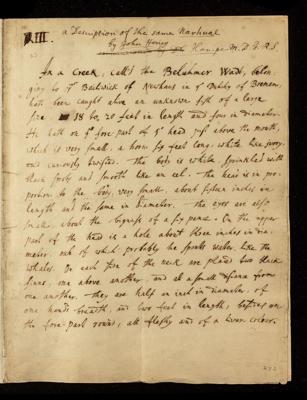 XIII. a Description of the same Narhual
by John Henry Hampe. M. D. F. R. S.
In a Creek, call'd the Belummer Wadt, belon-
ging to ye Bailwick of Newhaus in ye Dutchy of Bremen,
hath been caught alive an unknown fish of a large
size 18 to 20 feet in length and four in diameter.
He hath on ye fore-part of ye head just above the mouth,
which is very small, a horn six feet long, white like ivory,
and curiously twisted. the body is white, sprinkled with
black spots and smooth like an eel. the head is in pro-
portion to the body, very small, about fifteen inches in
length and the same in diameter. the eyes are also
small, about the bigness of a six pence. On the upper
part of the head is a hole about three inches in dia-
meter out of which probably he spouts water, like the
Whales. On each side of the neck are placed two black
finns, one above another, and at a small distance from
one another. they are half an inch in diameter, of
one hands breadth, and two feet in length, before on
the fore-part round, all fleshy and of a liver colour.